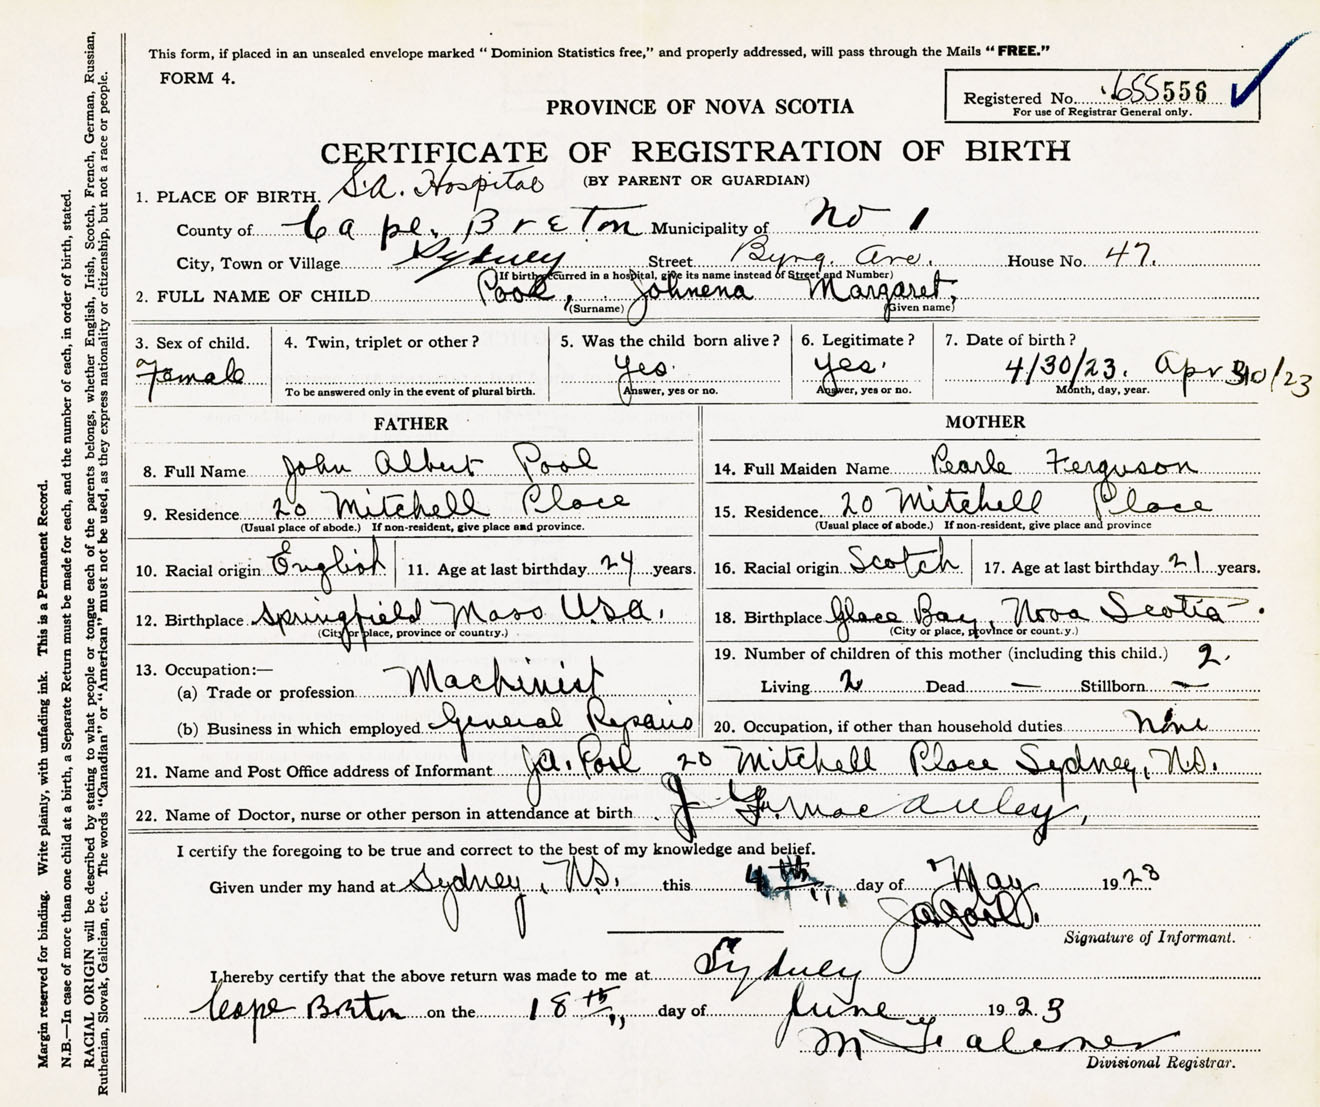 This form, if placed in an unsealed envelope marked “ Dominion Statistics free,” and properly addressed, will pass through the Mails “ FREE.”
FORM 4.
Registered No. 655556
For use of Registrar General only.
PROVINCE OF NOVA SCOTIA
CERTIFICATE OF REGISTRATION OF BIRTH
(BY PARENT OR GUARDIAN)
1. PLACE OF BIRTH. S.A. Hospital
County of Cape Breton Municipality of No 1
City, Town or Village Sydney Street Byng. Ave. House No. 47.
(If birth occurred in a hospital, give its name instead of Street and Number)
2. FULL NAME OF CHILD Pool, Johnena Margaret,
(Surname) (Given name)
3. Sex of child. 4. Twin, triplet or other ? 5. Was the child born alive ? 6. Legitimate ? 7. Date of birth ?
Female Yes. Yes. 4/30/23. Apr 30/23
To be answered only in the event of plural birth. Answer, yes or no. Answer, yes or no. Month, day, year.
FATHER MOTHER
8. Full Name John Albert Pool
9. Residence 20 Mitchell Place
(Usual place of abode.) If non-resident, give place and province.
10. Racial origin English 11. Age at last birthday 24 years.
12. Birthplace Springfield Mass U.S.A.
(City or place, province or country.)
13. Occupation:—
(a) Trade or profession Machinist
(b) Business in which employed General Repairs
14. Full Maiden Name Pearle Ferguson
15. Residence. 20 Mitchell Place
(Usual place of abode.) If non-resident, give place and province
16. Racial origin Scotch 17. Age at last birthday 21 years.
18. Birthplace Glace Bay, Nova Scotia.
(City or place, province or count.y.)
19. Number of children of this mother (including this child.) 2.
Living 2 Dead — Stillborn —
20. Occupation, if other than household duties None
21. Name and Post Office address of Informant J.A. Pool 20 Mitchell Place Sydney, N.S.
22. Name of Doctor, nurse or other person in attendance at birth J MacAuley,
I certify the foregoing to be true and correct to the best of my knowledge and belief.
Given under my hand at Sydney, N.S. this 4th day of May 1923
J.A. Pool.
Signature of Informant.
I hereby certify that the above return was made to me at Sydney
Cape Breton on the 18th day of June 1923
M Falconer
Divisional Registrar.
Margin reserved for binding. Write plainly, with unfading ink. This is a Permanent Record.
N.B.—In case of more than one child at a birth, a Separate Return must be made for each, and the number of each, in order of birth, stated.
RACIAL ORIGIN will be described by stating to what people or tongue each of the parents belongs, whether English, Irish, Scotch, French, German, Russian,
Ruthenian, Slovak, Galician, etc. The words “Canadian” or “American” must not be used, as they express nationality or citizenship, but not a race or people.